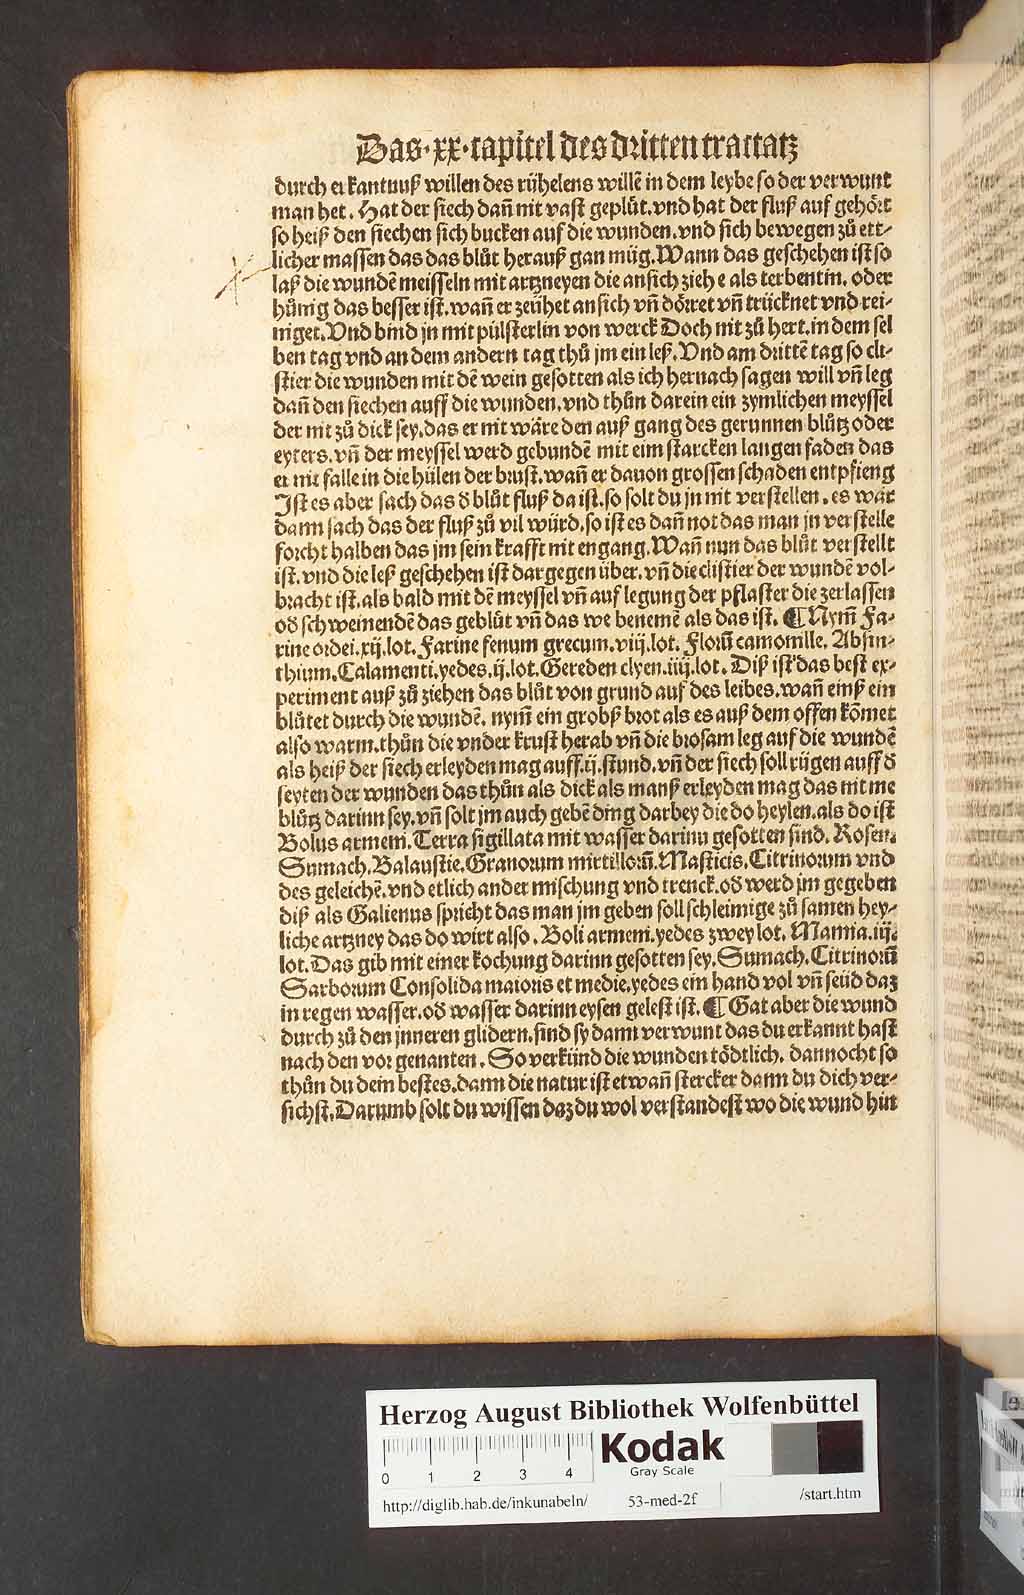 Das·xx·capitel des dritten tractatz
durch erkantnuß willen des rühelens willē in dem leybe so der verwunt
man het. Hat der siech dañ nit vast geplůt.vnd hat der fluß auf gehört
so heiß den siechen sich bucken auf die wunden.vnd sich bewegen zů ett-
licher massen das das blůt herauß gan müg.Wann das geschehen ist so
laß die wundē meisseln mit artzneyen die an sich ziehe als terbentin. oder
hůnig das besser ist.wañ er zeühet an sich vñ dörret vñ trücknet vnd rei-
niget.Vnd bind jn mit pülsterlin von werck Doch nit zů hert.in dem sel
ben tag vnd an dem andern tag thů jm ein leß.Vnd am drittē tag so cli-
stier die wunden mit dē wein gesotten als ich hernach sagen will vñ leg
dañ den siechen auff die wunden.vnd thůn darein ein zymlichen meyssel
der nit zů dick sey.das er nit wäre den auß gang des gerunnen blůtz oder
eyters.vñ der meyssel werd gebundē mit eim starcken langen faden das
er nit falle in die hülen der brust.wañ er dauon grossen schaden entpfieng
Ist es aber sach das d̄ blůt fluß da ist.so solt du jn nit verstellen.es wär
dann sach das der fluß zů vil würd.so ist es dañ not das man jn verstelle
forcht halben das jm sein krafft nit engang.Wañ nun das blůt verstellt
ist.vnd die leß geschehen ist dargegen über.vñ die clistier der wundē vol-
bracht ist.als bald mit dē meyssel vñ auf legung der pflaster die zerlassen
od̄ schweinendē das geblůt vñ das we benemē als das ist. ¶ Nym̄ Fa-
rine ordei.xij.lot. Farine fenum grecum.viij.lot. Florū camomille. Absin-
thium.Calamenti.yedes.ij.lot.Gereden clyen.iiij.lot. Diß ist das best ex-
periment auß zů ziehen das blůt von grund auf des leibes.wañ einß ein
blůtet durch die wundē. nym̄ ein grobß brot als es auß dem offen kōmet
also warm.thůn die vnder krust herab vñ die brosam leg auf die wundē
als heiß der siech erleyden mag auff.ij.stund.vñ der siech soll rügen auff d̄
seyten der wunden das thůn als dick als manß erleyden mag das nit me
blůtz darinn sey.vñ solt jm auch gebē ding darbey die do heylen.als do ist
Bolus armeni.Terra sigillata mit wasser darinn gesotten sind. Rosen.
Sumach.Balaustie.Granorum mirtillorū.Masticis.Citrinorum vnd
des geleichē.vnd etlich ander mischung vnd trenck.od̄ werd jm gegeben
diß als Galienus spricht das man jm geben soll schleimige zů samen hey-
liche artzney das do wirt also. Boli armeni.yedes zwey lot. Mamia.iij.
lot.Das gib mit einer kochung darinn gesotten sey.Sumach.Citrinorū
Sarborum Consolida maioris et medie.yedes ein hand vol vñ seüd daz
in regen wasser.od̄ wasser darinn eysen gelest ist.¶ Gat aber die wund
durch zů den jnneren glidern.sind sy dann verwunt das du erkannt hast
nach den vor genanten. So verkünd die wunden tödtlich. dannocht so
thůn du dein bestes.dann die natur ist etwañ stercker dann du dich ver-
sichst.Darumb solt du wissen daz du wol verstandest wo die wund hin
Herzog August Bibliothek Wolfenbüttel
0 1 2 3 4
Kodak
Gray Scale
http://diglib.hab.de/inkunabeln/ 53-med-2f /start.htm